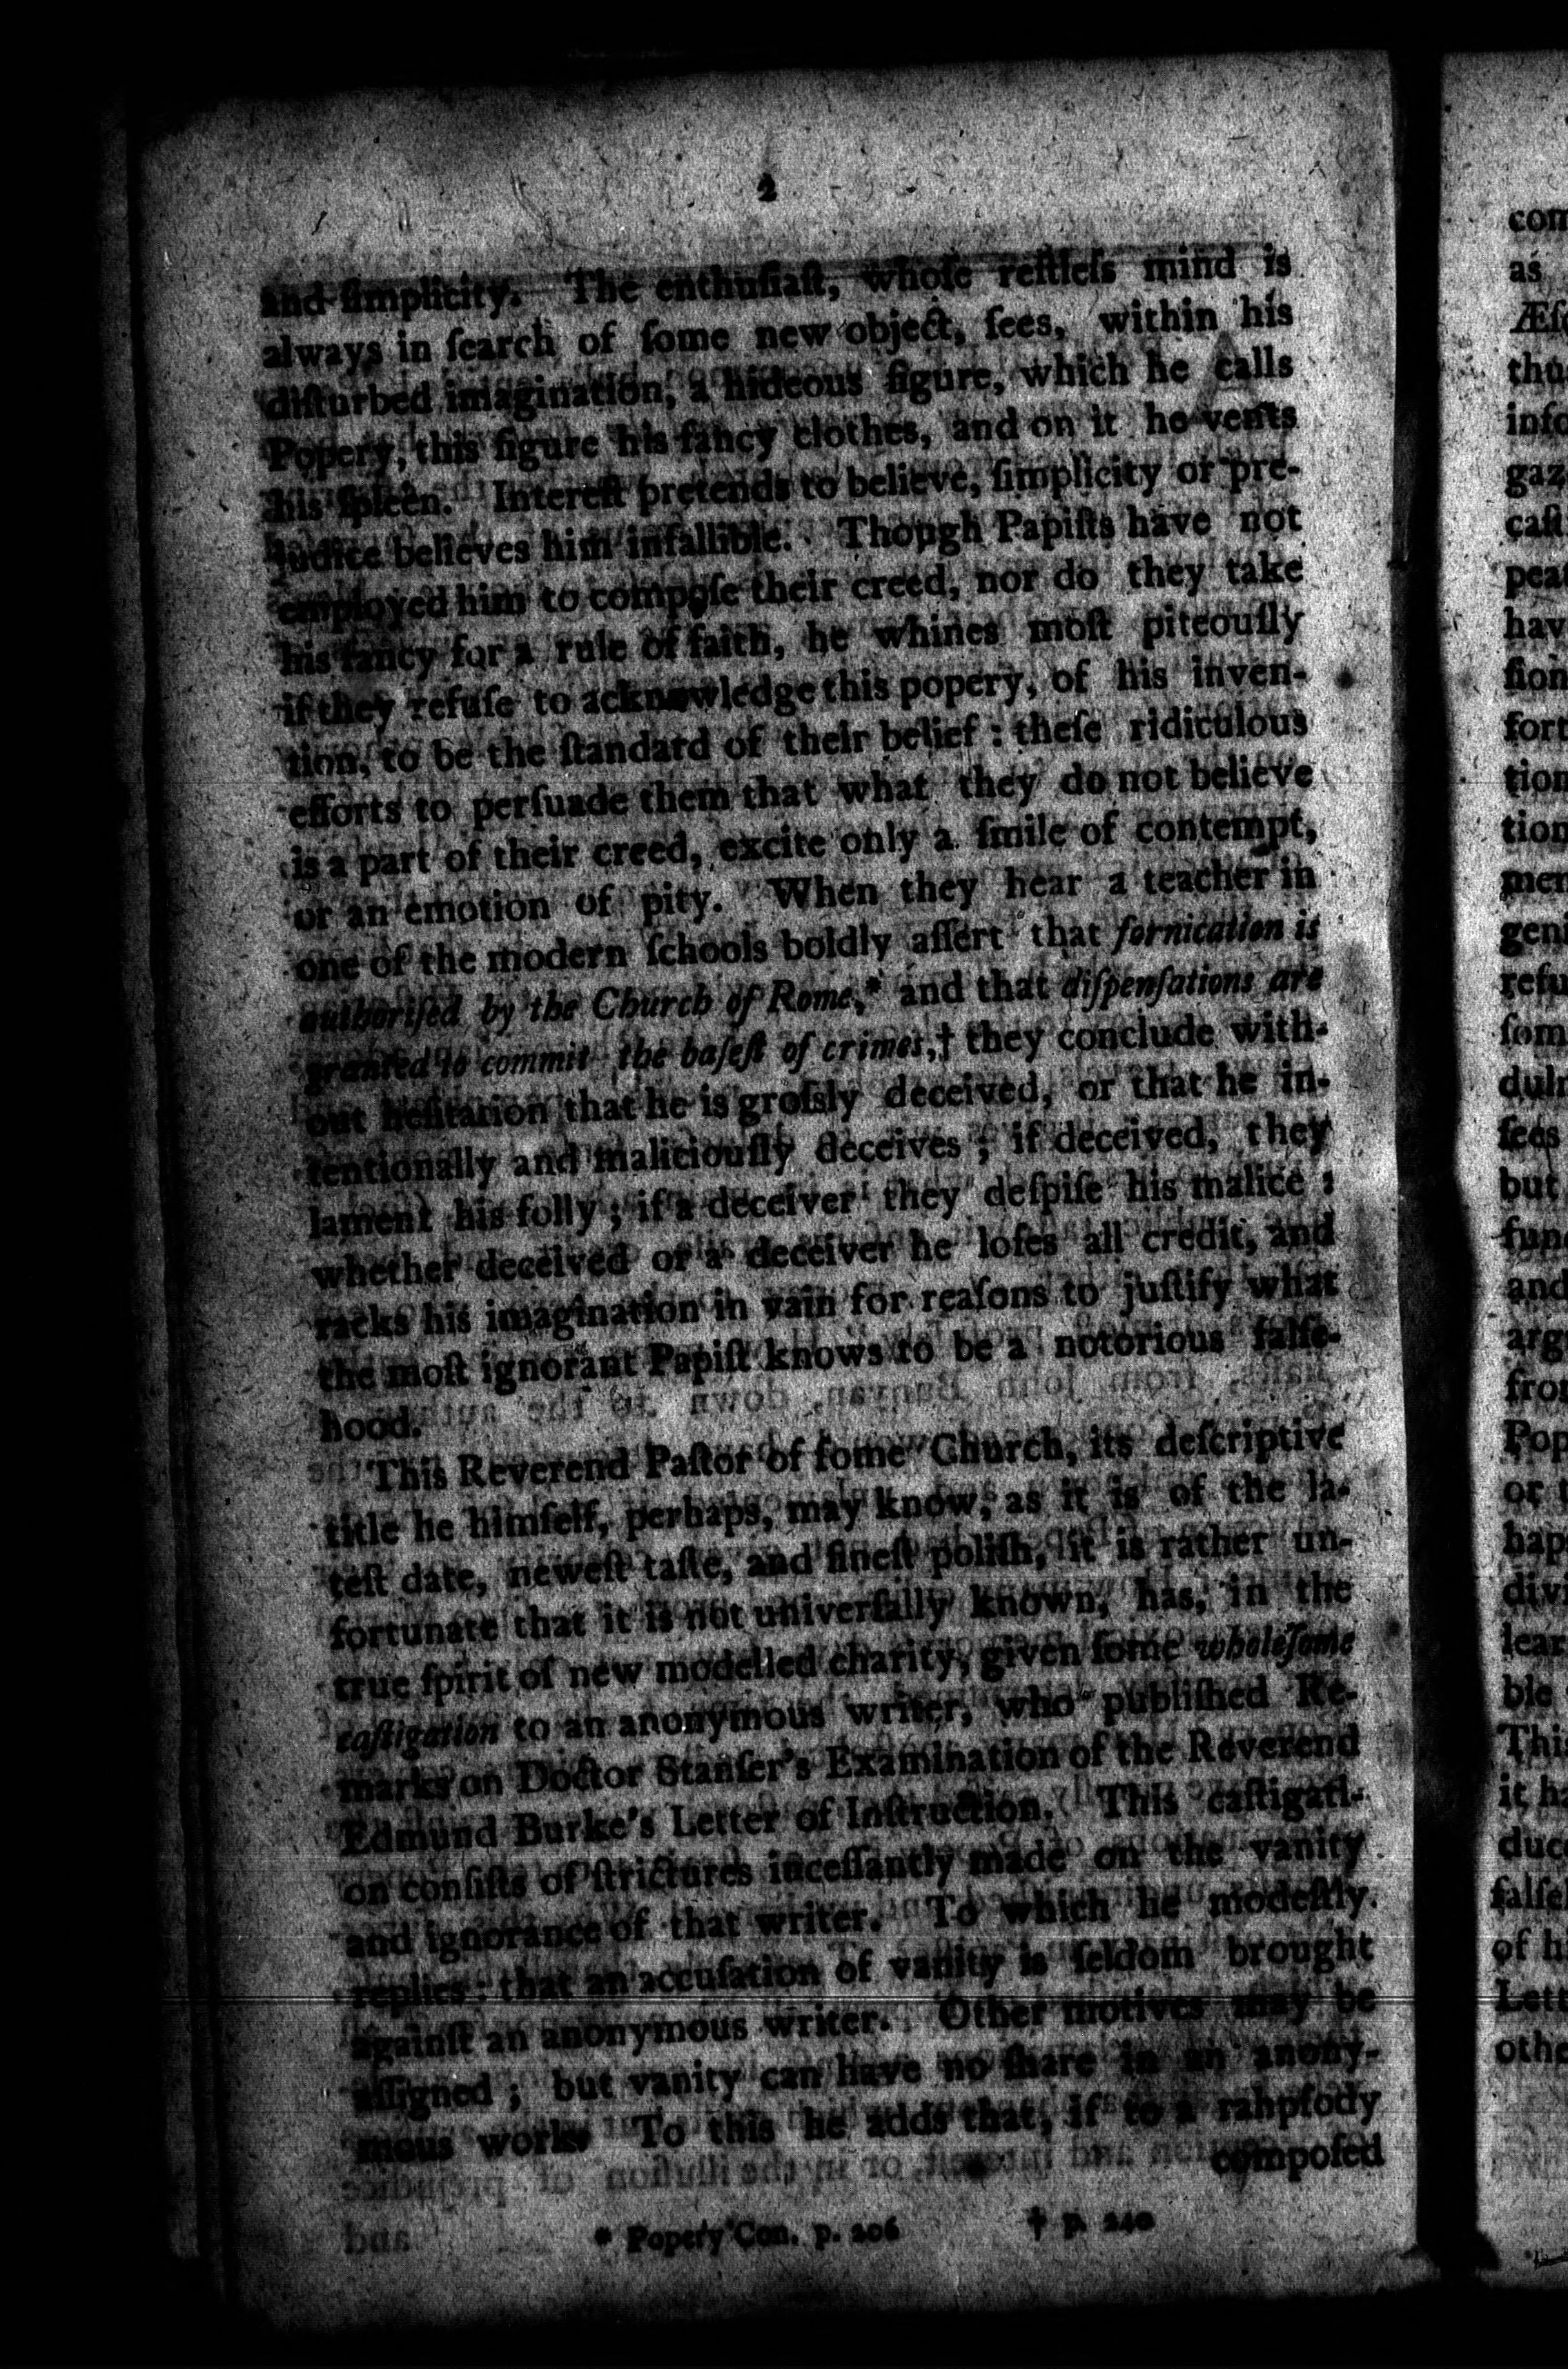 2
and simplicity. The enthusiaſt, whoſe reſtleſs mind is
always in ſearch of ſome new object, ſees, within his
diſturbed imagination, a hideous figure, which he calls
Popery, this figure his fancy clothes, and on it he vents
his ſpleen. Intereſt pretends to believe, ſimplicity or pre-
judice believes him infallible. Though Papiſts have not
employed him to compoſe their creed, nor do they take
his fancy for a rule of faith, he whines moſt piteouſly
if they refuſe to acknowledge this popery, of his inven-
tion, to be the ſtandard of their belief : theſe ridiculous
efforts to perſuade them that what they do not believe
is a part of their creed, excite only a ſmile of contempt,
or an emotion of pity. When they hear a teacher in
one of the modern ſchools boldly aſſert that fornication is
authoriſed by the Church of Rome,* and that diſpenſations are
granted to commit the baſeſt of crimes,† they conclude with-
out heſitation that he is groſsly deceived, or that he in-
tentionally and maliciouſly deceives ; if deceived, they
lament his folly ; if a deceiver they deſpiſe his malice :
whether deceived or a deceiver he loſes all credit, and
racks his imagination in vain for reaſons to juſtify what
the moſt ignorant Papiſt knows to be a notorious falſe-
hood.
This Reverend Paſtor of ſome Church, its deſcriptive
title he himſelf, perhaps, may know, as it is of the la-
teſt date, neweſt taſte, and fineſt poliſh, it is rather un-
fortunate that it is not univerſally known, has, in the
true ſpirit of new modelled charity, given ſome wholeſome
caſtigation to an anonymous writer, who publiſhed Re-
marks on Doctor Stanſer's Examination of the Reverend
Edmund Burke's Letter of Inſtruction. This caſtigati-
on conſiſts of ſtrictures inceſſantly made on the vanity
and ignorance of that writer. To which he modeſtly
replies : that an accuſation of vanity is ſeldom brought
againſt an anonymous writer. Other motives may be
aſſigned ; but vanity can have no ſhare in an anony-
mous work. To this he adds that, if to a rahpſody
compoſed
* Popery Con. p. 206 † p. 240
con
as
Æſ
thu
inſo
gaz
caſt
peaſ
hav
ſion
fort
tion
tion
men
geni
refu
ſom
dulg
ſees
but
func
and
arg
fron
Pop
or
hap
div
lear
ble
This
it h
duc
falſe
of hi
Lett
othe